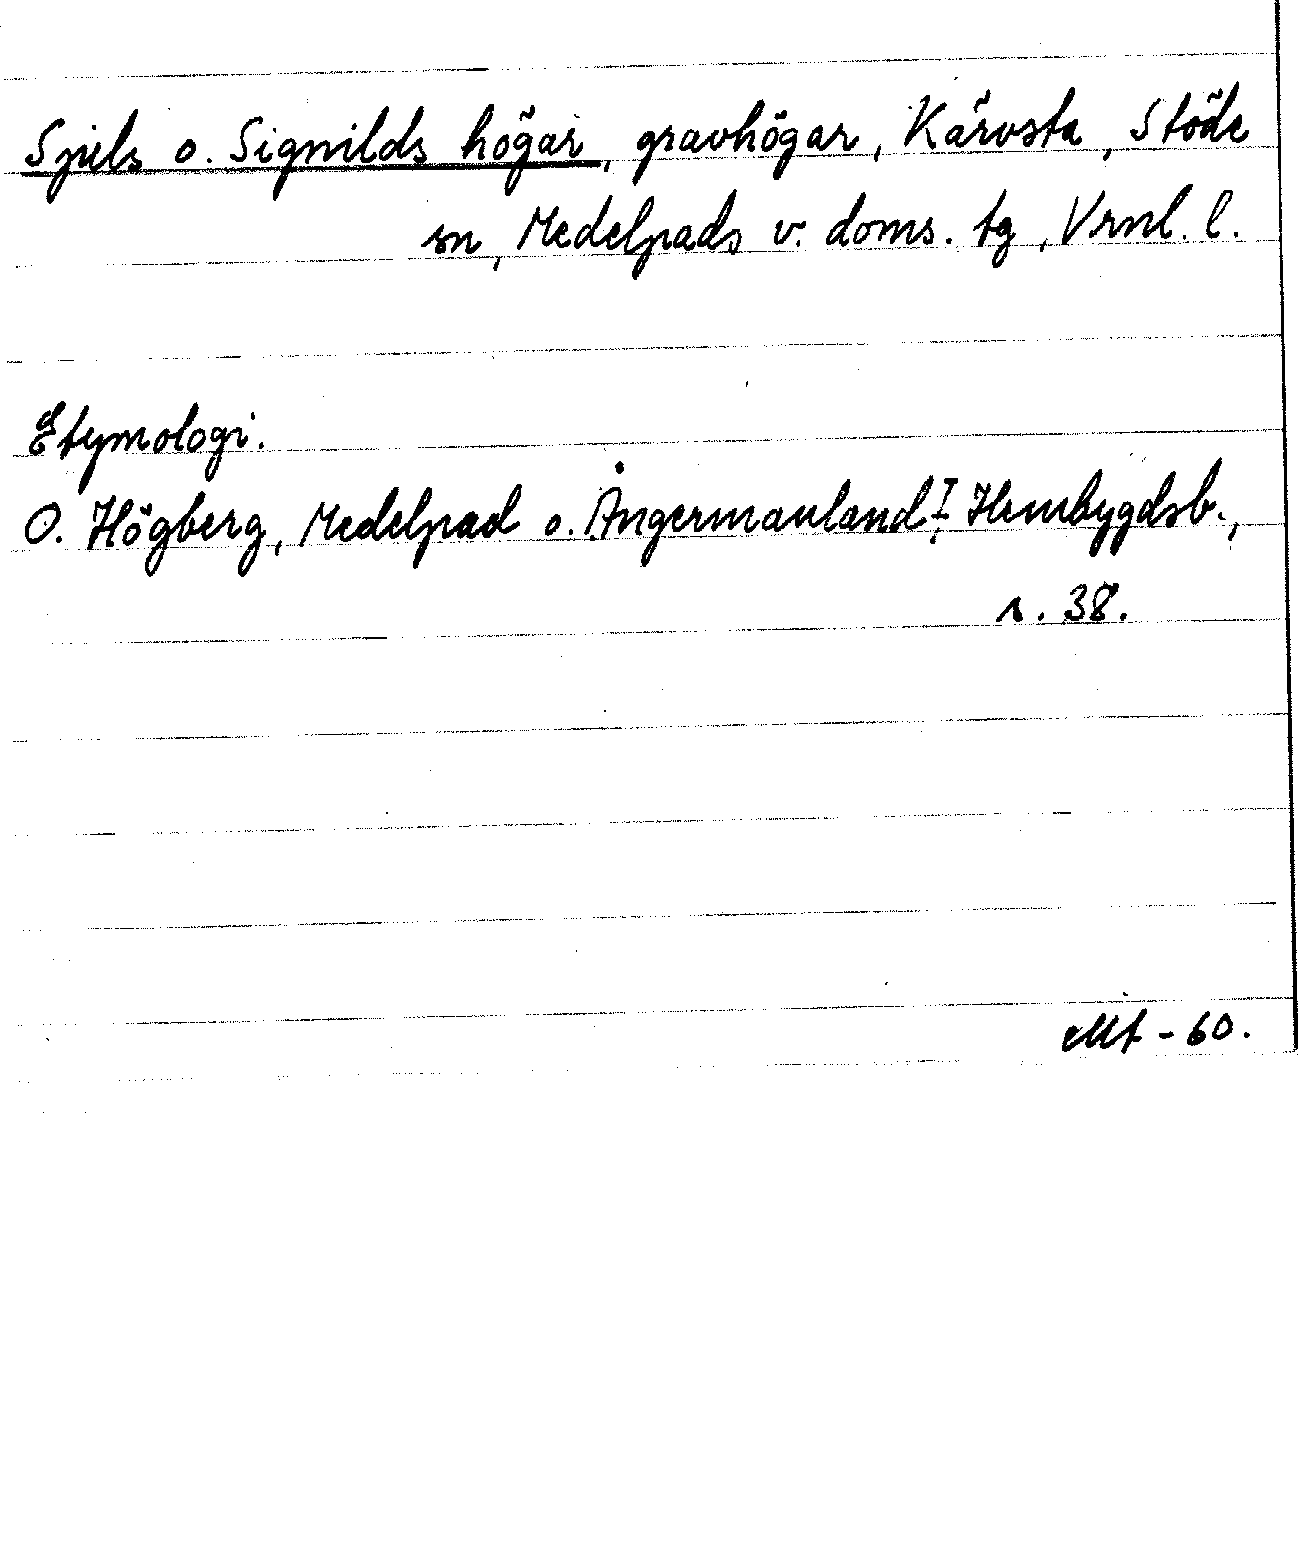 Spels o. Signilds högar, gravhögar, Kärvsta, Stöde
sn, Medelpads v. doms. tg, Vrnl. l.
Etymologi.
O. Högberg, Medelpad o. Ångermanland I, Hembygdsb.,
s. 38.
-60.